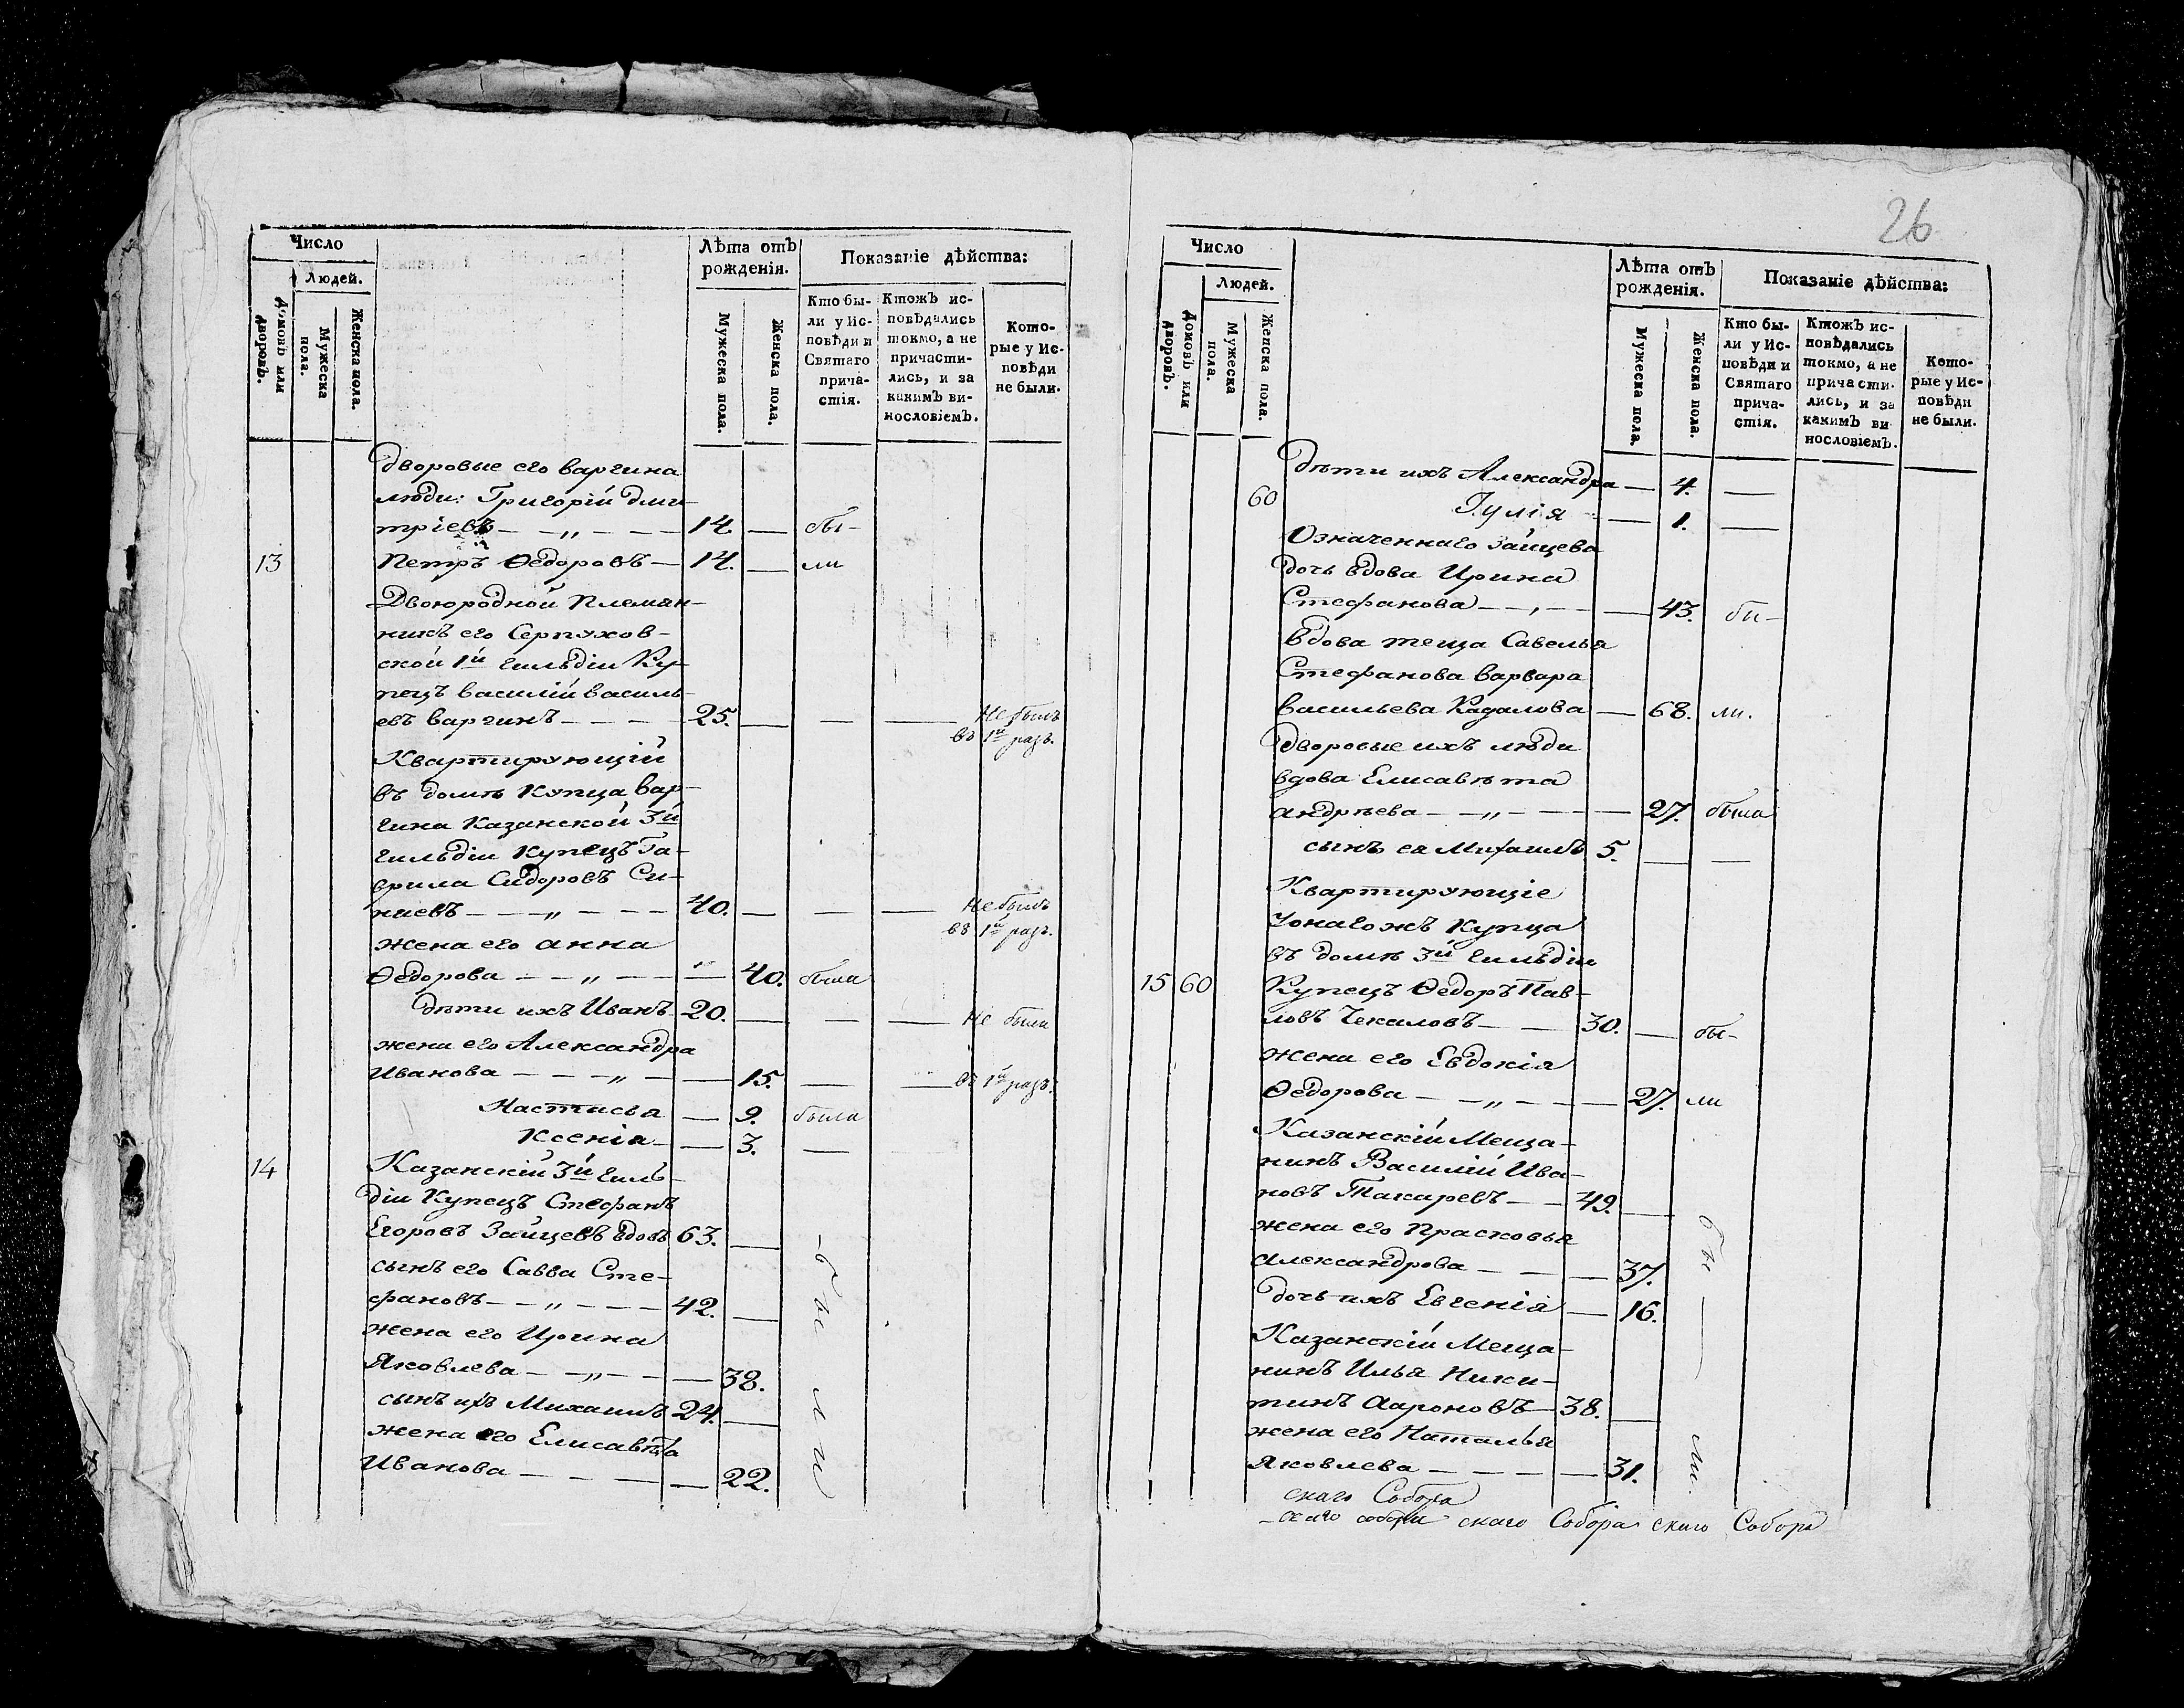 Число
Людей.
Домовъ или дворовъ.
Мужеска пола.
Женска пола.
Лѣта отъ рожденія.
Мужеска пола.
Женска пола.
Показаніе дѣйства:
Кто бы-
ли у Ис-
повѣди и
Святаго
прича-
стія.
Ктожъ ис-
повѣдались
токмо, а не
причасти-
лись, и за
какимъ ви-
нословіемъ.
Кото-
рые у Ис-
повѣди
не были.
дворовые его варгина
люди: Григорій дми
тріевъ — „ — 14. — бы-
13 Петръ Ѳедоровъ — 14. — ли
Двоюродной племян-
никъ его Серпухов-
ской 1й гильдіи Ку-
пецъ василій василь-
евъ варгинъ — 25. — — — Не былъ
въ 1й разъ.
Квартирующій
въ домѣ Купца вар-
гина Казанской 3й
гильдіи Купецъ Га-
врила Сидоровъ Си-
ниевъ — „ — 40. — — — Не былъ
въ 1й разъ.
жена его анна
Ѳедорова — „ — — 40. была
дѣти ихъ Иванъ 20. — — — Не были
жена его Александра
Иванова — „ — — 15. — — въ 1й разъ.
Настасья — 9. была
Ксенія — — 3. —
14 Казанскій 3й гиль-
діи Купецъ Стефанъ
Егоровъ Зайцевъ вдовъ 63. —
сынъ его Савва Сте-
фановъ — „ — 42. —
жена его Ирина
Яковлева — „ — — 38.
сынъ ихъ Михаилъ 24. —
жена его Елисавѣта
Иванова — — 22.
-бы
ли
26
Число
Людей.
Домовъ или дворовъ.
Мужеска пола.
Женска пола.
Лѣта отъ рожденія.
Мужеска пола.
Женска пола.
Показаніе дѣйства:
Кто бы-
ли у Ис-
повѣди и
Святаго
прича-
стія.
Ктожъ ис-
повѣдались
токмо, а не
причасти-
лись, и за
какимъ ви
нословіемъ.
Кото-
рые у Ис-
повѣди
не были.
дѣти ихъ Александра — 4. —
60 Іулія — 1. —
Означеннаго зайцева
дочь вдова Ирина
Стефанова — , — — 43. бы-
вдова теща Савелья
Стефанова варвара
васильева — 68. ли.
дворовые ихъ люди
вдова Елисавѣта
андрѣева — „ — — 27. была
сынъ ея Михаилъ 5. — —
Квартирующіе
уонагожъ Купца
въ домѣ 3й гильдіи
15 60 Купецъ Ѳедоръ Пав-
ловъ Чекаловъ — 30. — бы-
жена его Евдокія
Ѳедорова — „ — — 27. ли
Казанскій Меща-
нинъ Василій Ива-
новъ Токаревъ — 49. —
жена его Прасковья
александрова — — 37.
дочь ихъ Евгенія — 16.
Казанскій Меща-
нинъ Илья Ники-
тинъ Аароновъ — 38. —
жена его Наталья
Яковлева — — 31.
бы —
ли.
скаго Собора
-скаго собора скаго Собора скаго Собора